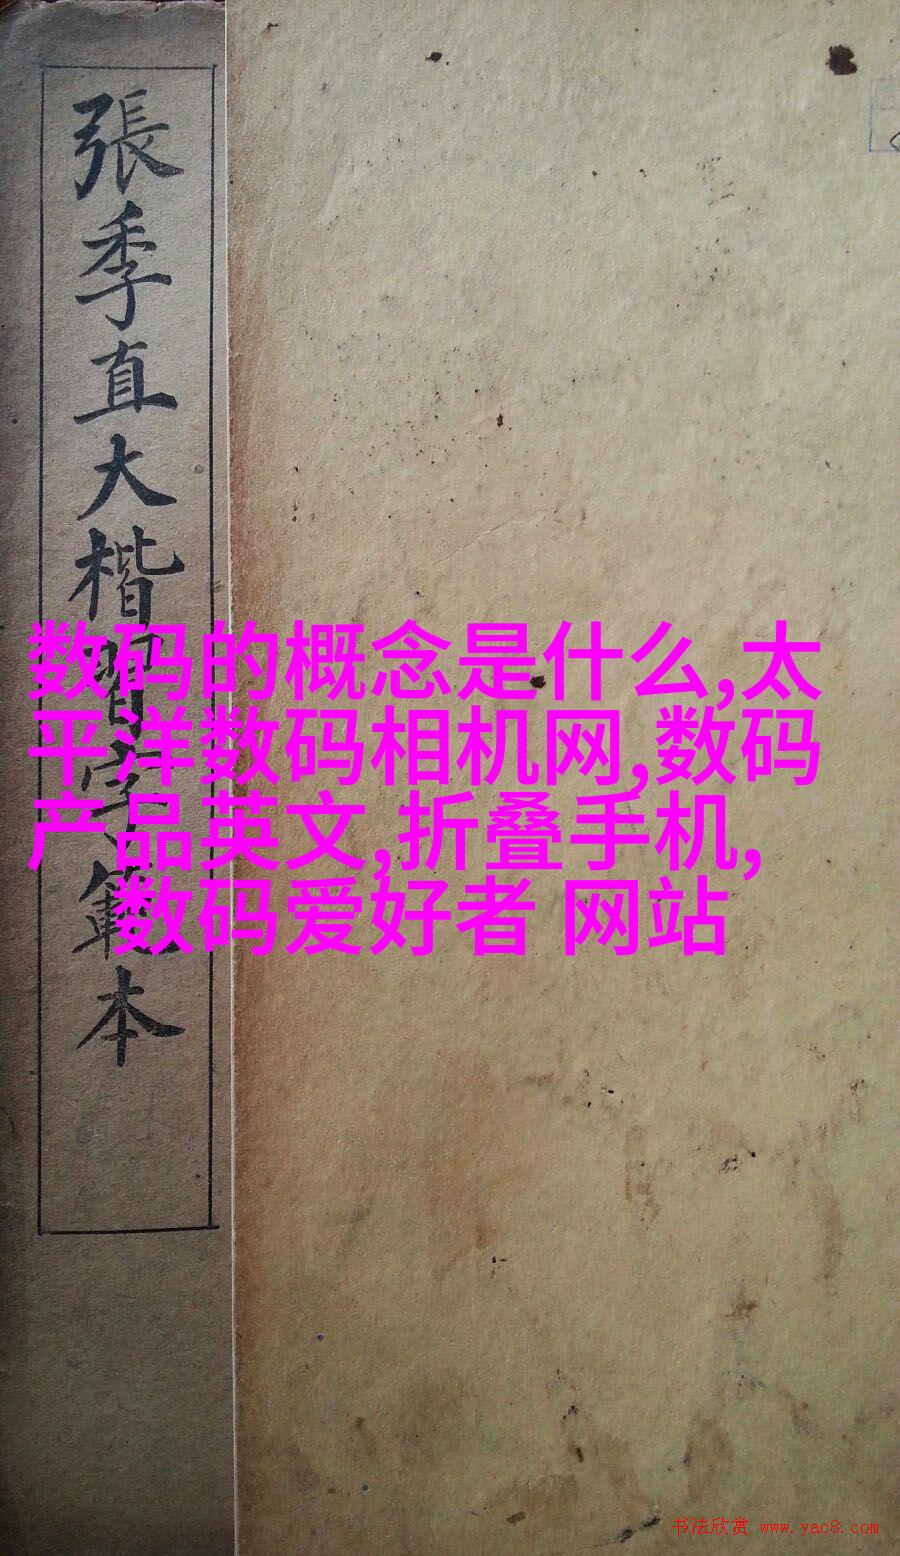 張季直大楷習字範本
数码的概念是什么,太
平洋数码相机网,数码
产品英文,折叠手机,
数码爱好者 网站
书法欣赏 www.yac8.com